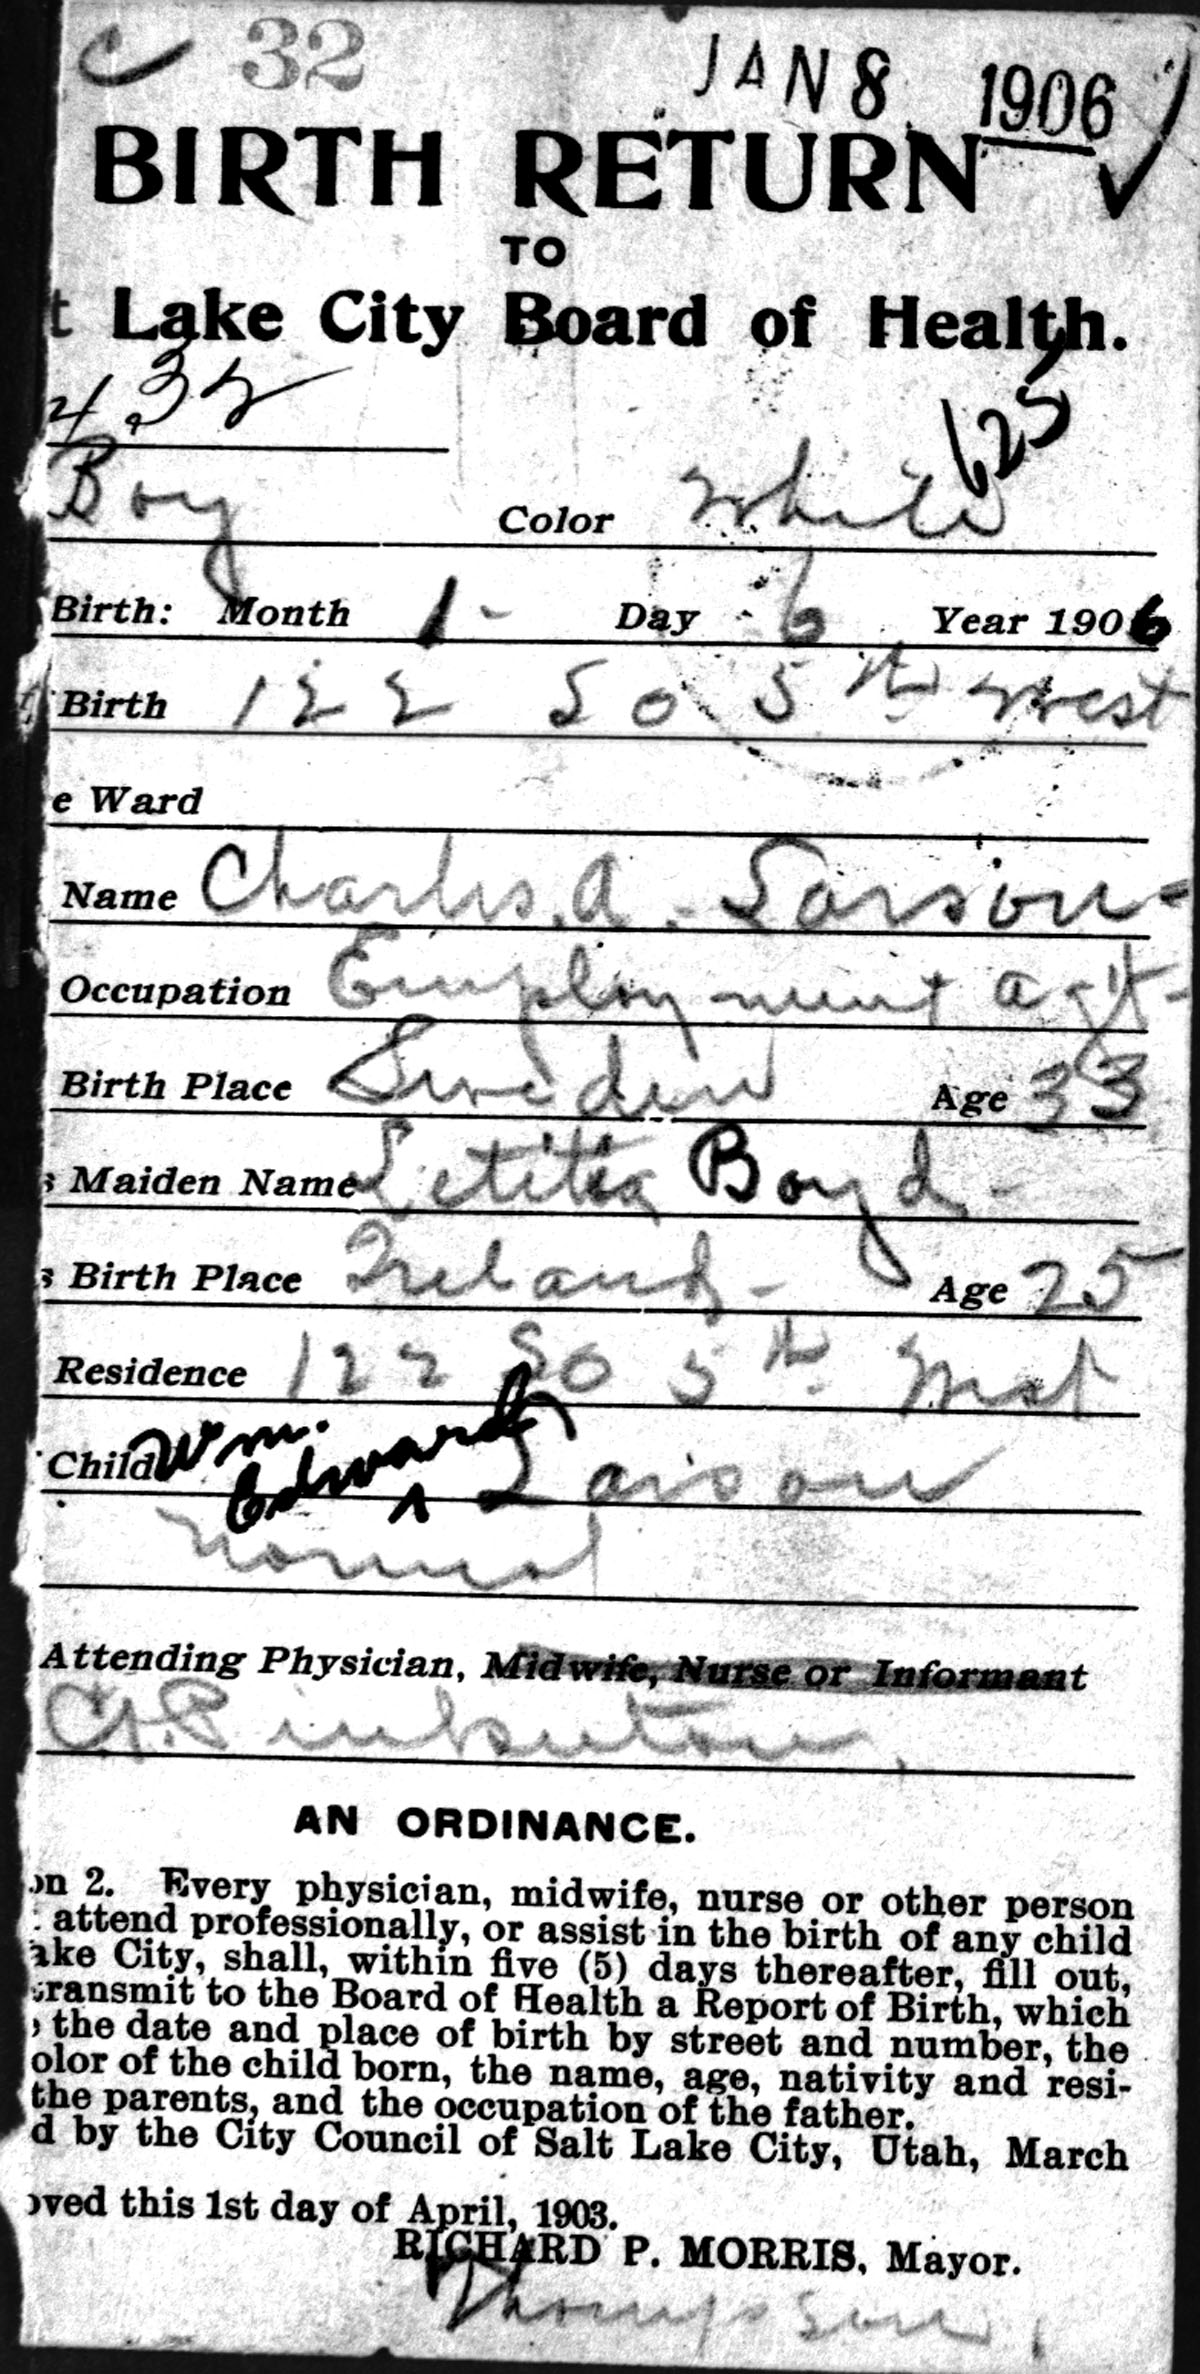 c 32
JAN 8 1906
BIRTH RETURN
TO
t Lake City Board of Health.
432
625
Boy Color White
Birth: Month 1 - Day 6 Year 1906
Birth 122 So 5th West
e Ward
Name Charles. A. Larson
Occupation Employment agt
Birth Place Sweden Age 33
s Maiden Name Letitia Boyd
s Birth Place Ireland Age 25
Residence 122 So 5th West
Child Wm. Edward Larson
Normal
Attending Physician, Midwife, Nurse or Informant
Pinkerton
AN ORDINANCE.
on 2. Every physician, midwife, nurse or other person
attend professionally, or assist in the birth of any child
ake City, shall, within five (5) days thereafter, fill out,
transmit to the Board of Health a Report of Birth, which
the date and place of birth by street and number, the
olor of the child born, the name, age, nativity and resi-
the parents, and the occupation of the father.
d by the City Council of Salt Lake City, Utah, March
oved this 1st day of April, 1903.
RICHARD P. MORRIS, Mayor.
Thompson